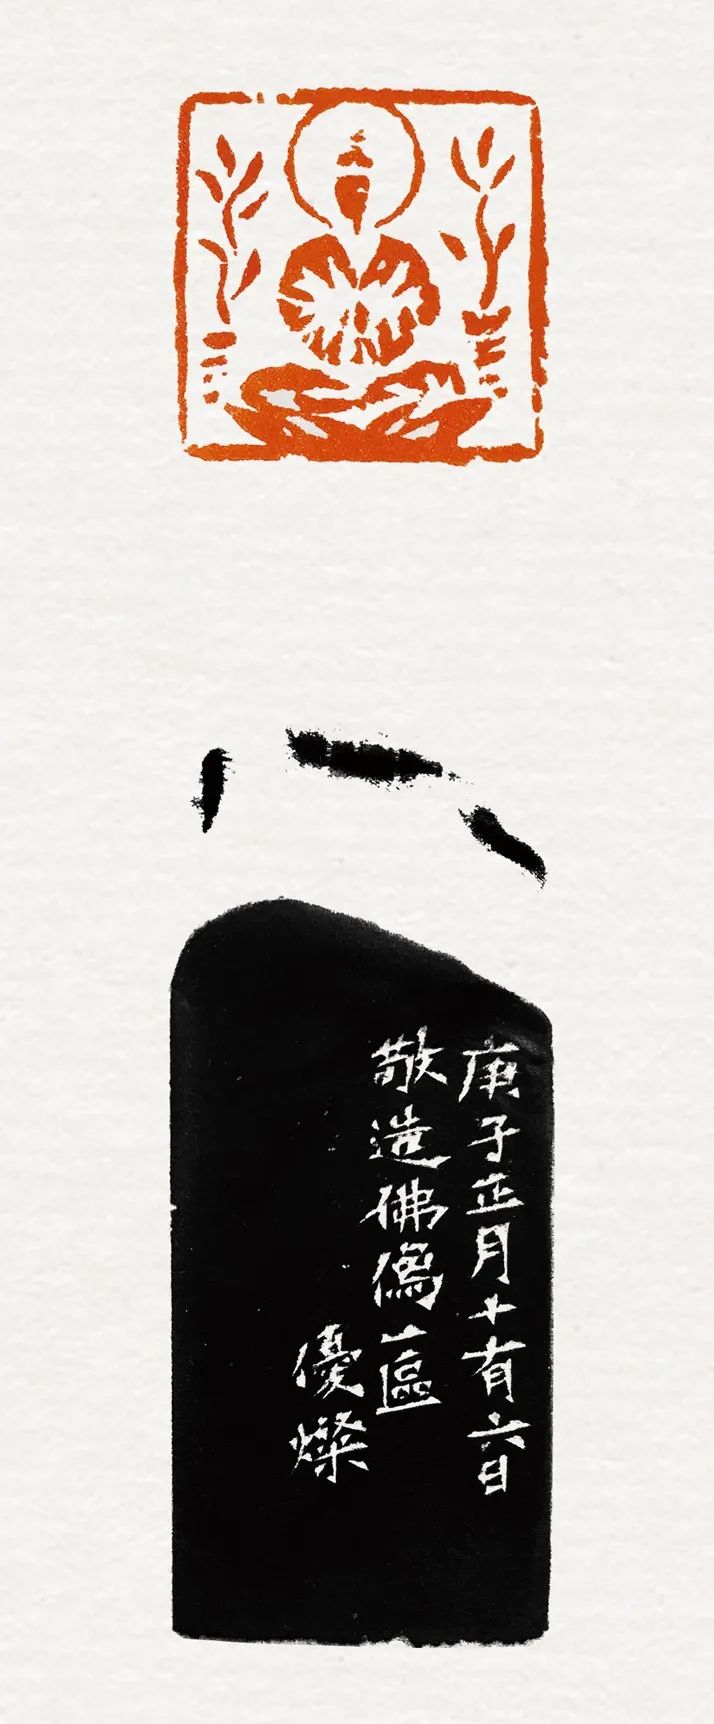 庚子正月十有六日
敬造佛像一區
優燦